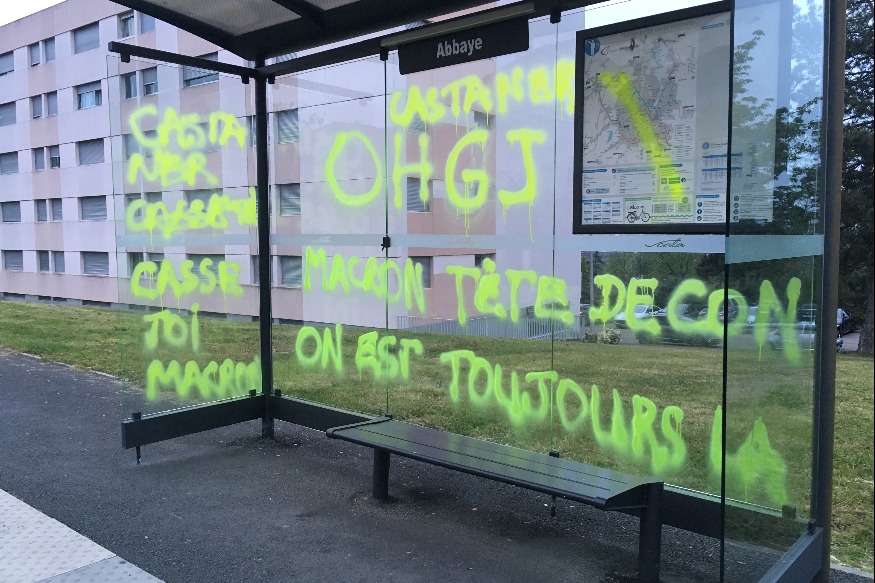 Abbaye
CASTA
NER
CASSE
JOI
MACRON
CASTANER
OHGJ
MACRON TÊTE DE CON
ON EST TOUJOURS LA